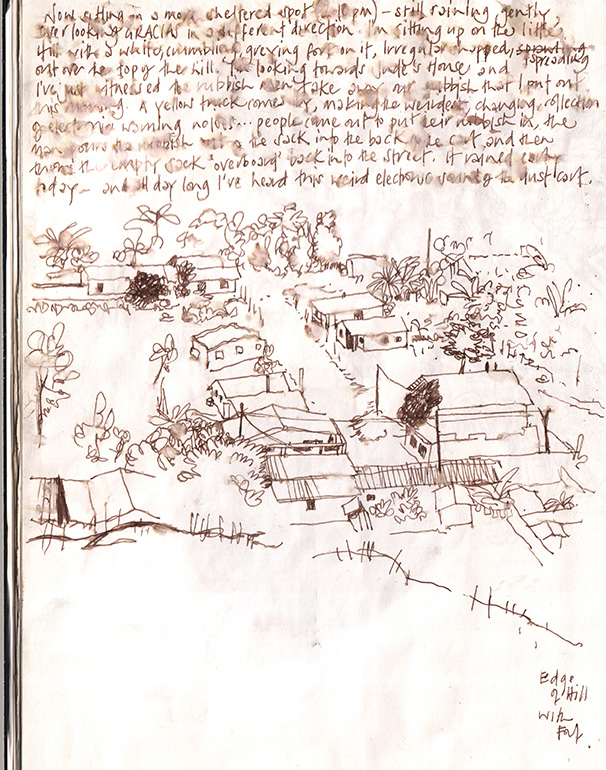 Now sitting in a more sheltered spot pm) - still raining gently,
overlooking GRACIAS in a different direction. I'm sitting up on the little
Hill with a white, crumbling, greying fort on it, irregular shaped, spreading
out over the top of the hill. I'm looking towards Jude's House, and
I've just witnessed the rubbish men take away our rubbish that I put out
this morning. A yellow truck comes by, making the weirdest, changing, collection
of electronic warning noises... people come out to put their rubbish in, the
man the rubbish the sack into the back the cart, and then
throws the empty sack 'overboard' back into the street. It rained
today - and all day long I've heard this weird electronic sound of the dust cart.
Edge
of Hill
with
Fort.